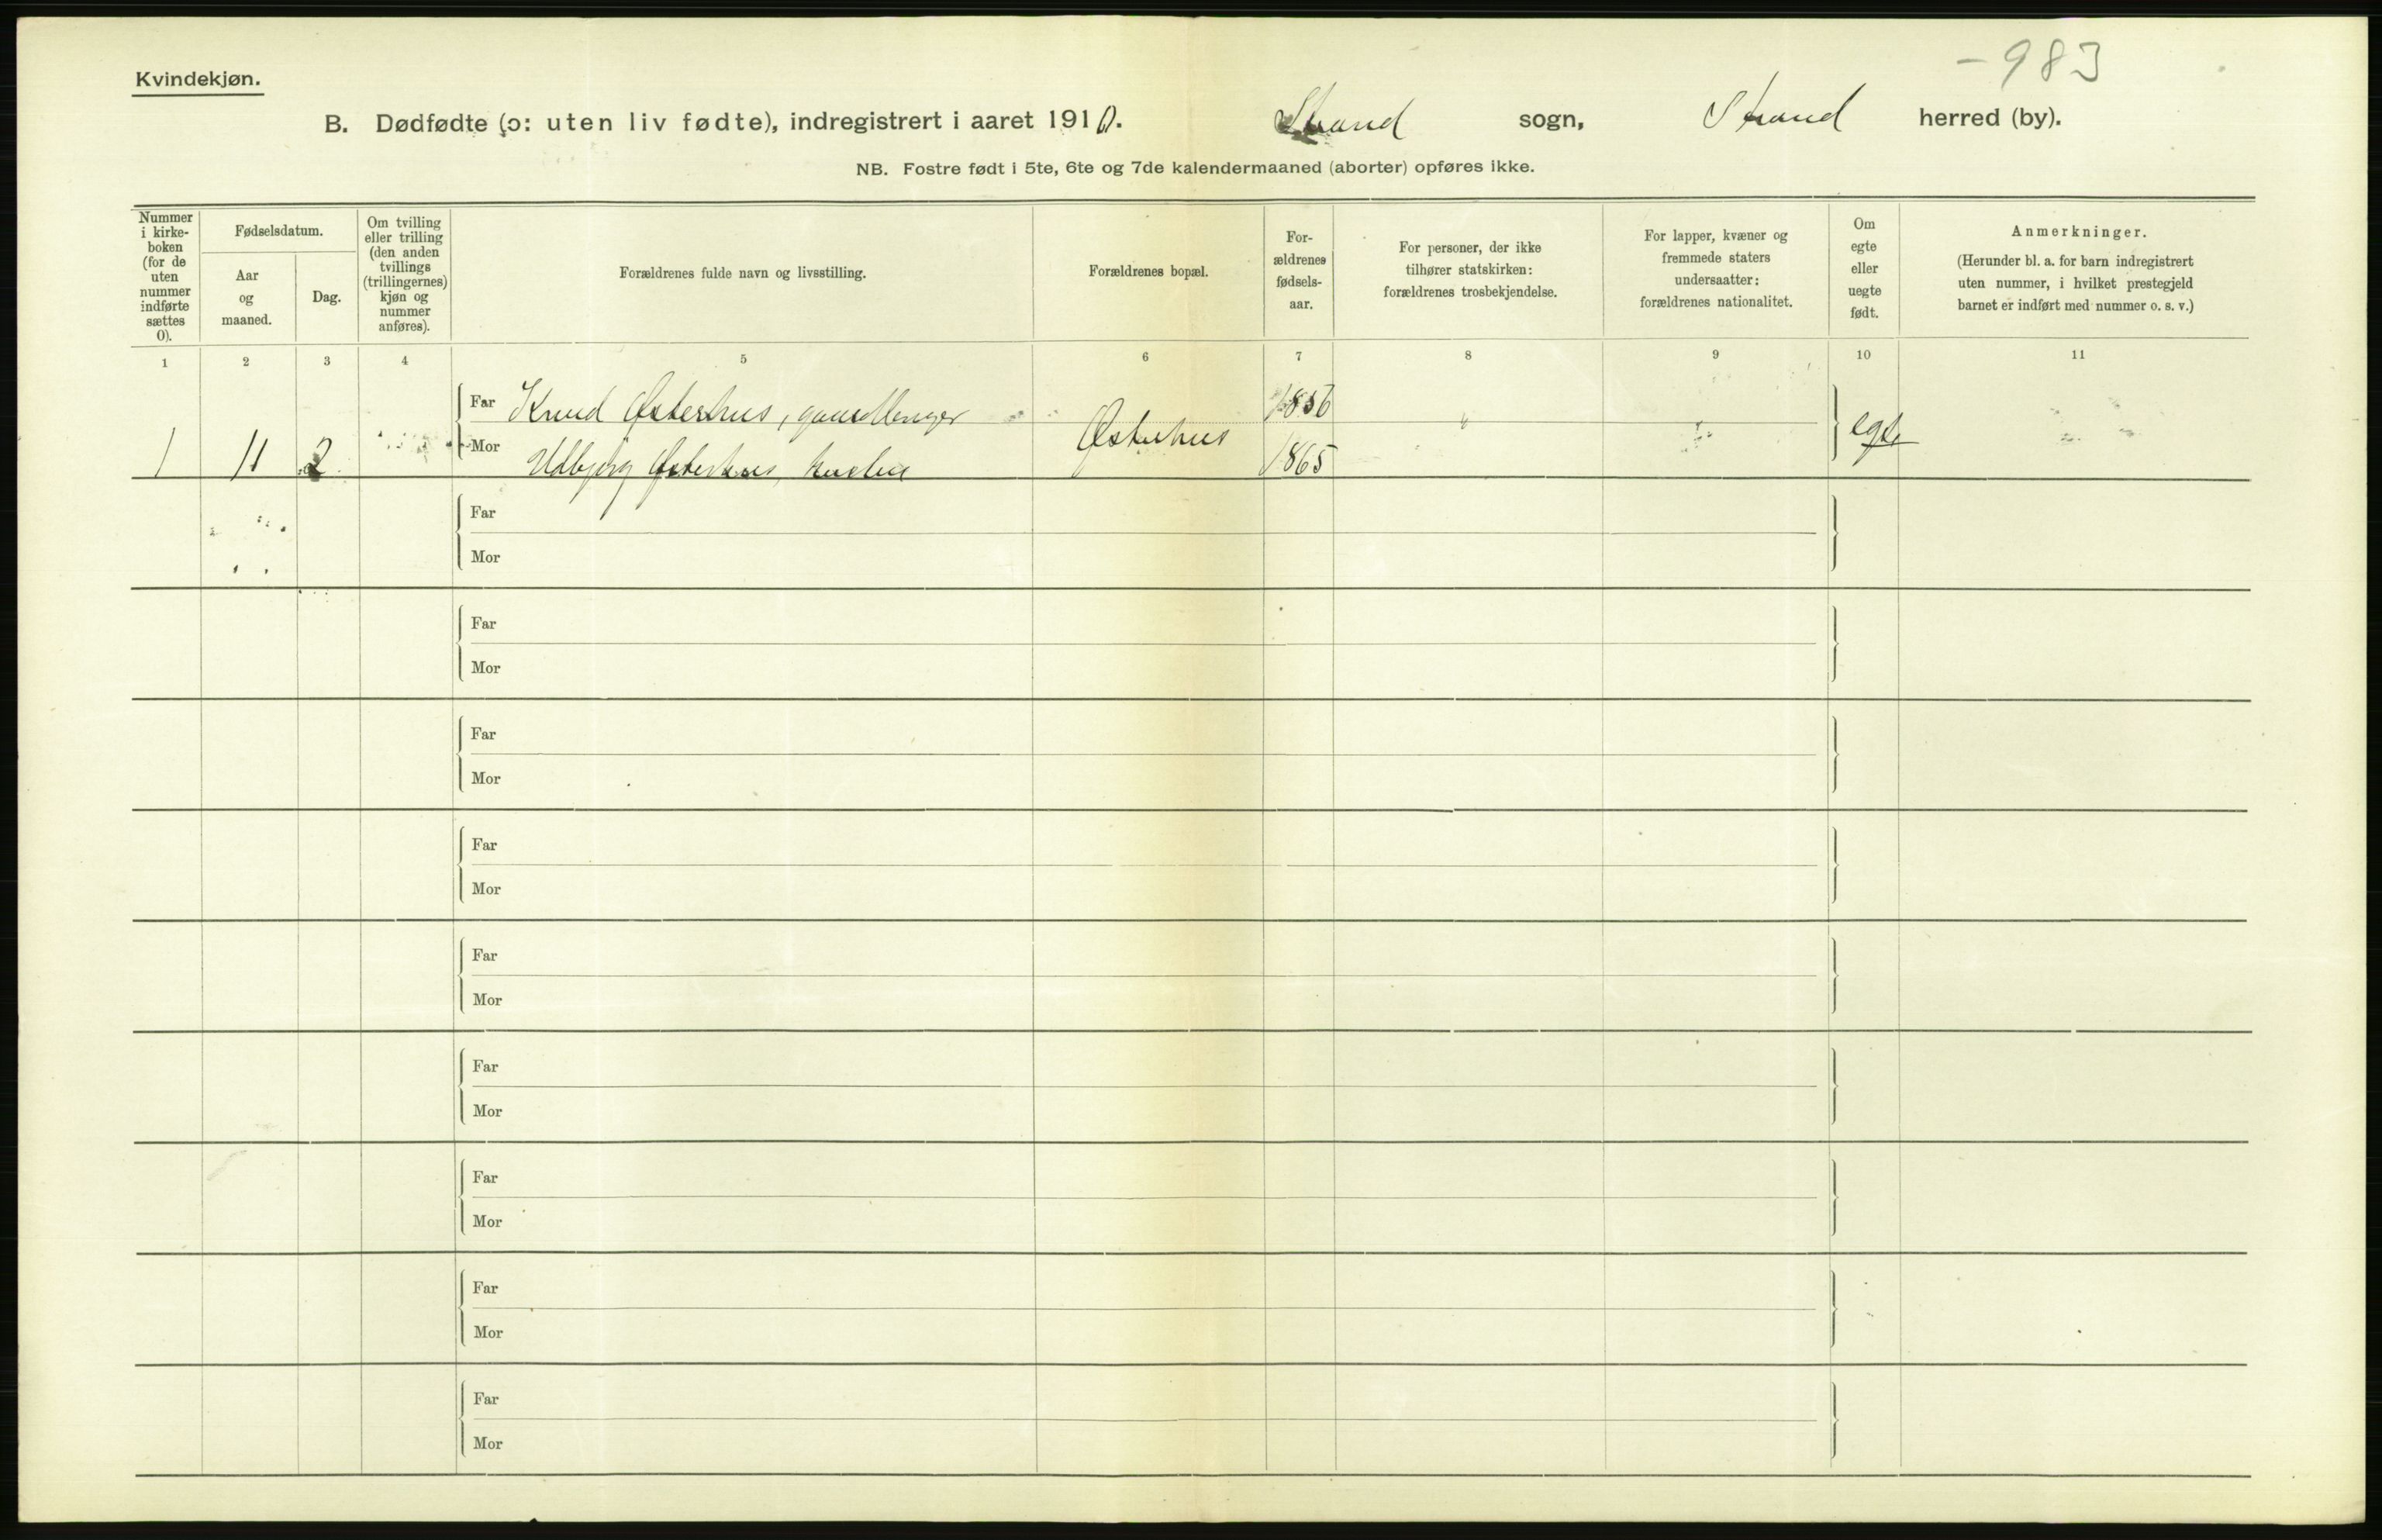 -983
Kvindekjøn.
B. Dødfødte (ɔ: uten liv fødte), indregistrert i aaret 1910. Strand sogn, Strand herred (by).
NB. Fostre født i 5te, 6te og 7de kalendermaaned (aborter) opføres ikke.
Nummer
i kirke-
boken
(for de
uten
nummer
indførte
sættes
0).
Fødselsdatum.
Aar
og
maaned.
Dag.
Om tvilling
eller trilling
(den anden
tvillings
(trillingernes)
kjøn og
nummer
anføres).
Forældrenes fulde navn og livsstilling.
Forældrenes bopæl.
For-
ældrenes
fødsels-
aar.
For personer, der ikke
tilhører statskirken:
forældrenes trosbekjendelse.
For lapper, kvæner og
fremmede staters
undersaatter:
forældrenes nationalitet.
Om
egte
eller
uegte
født.
Anmerkninger.
(Herunder bl. a. for barn indregistrert
uten nummer, i hvilket prestegjeld
barnet er indført med nummer o. s. v.)
1 2 3 4 5 6 7 8 9 10 11
Far Knud Østerhus, 1856
1 11 2 Mor Østerhus, Østerhus 1865 egte
Far
Mor
Far
Mor
Far
Mor
Far
Mor
Far
Mor
Far
Mor
Far
Mor
Far
Mor
Far
Mor